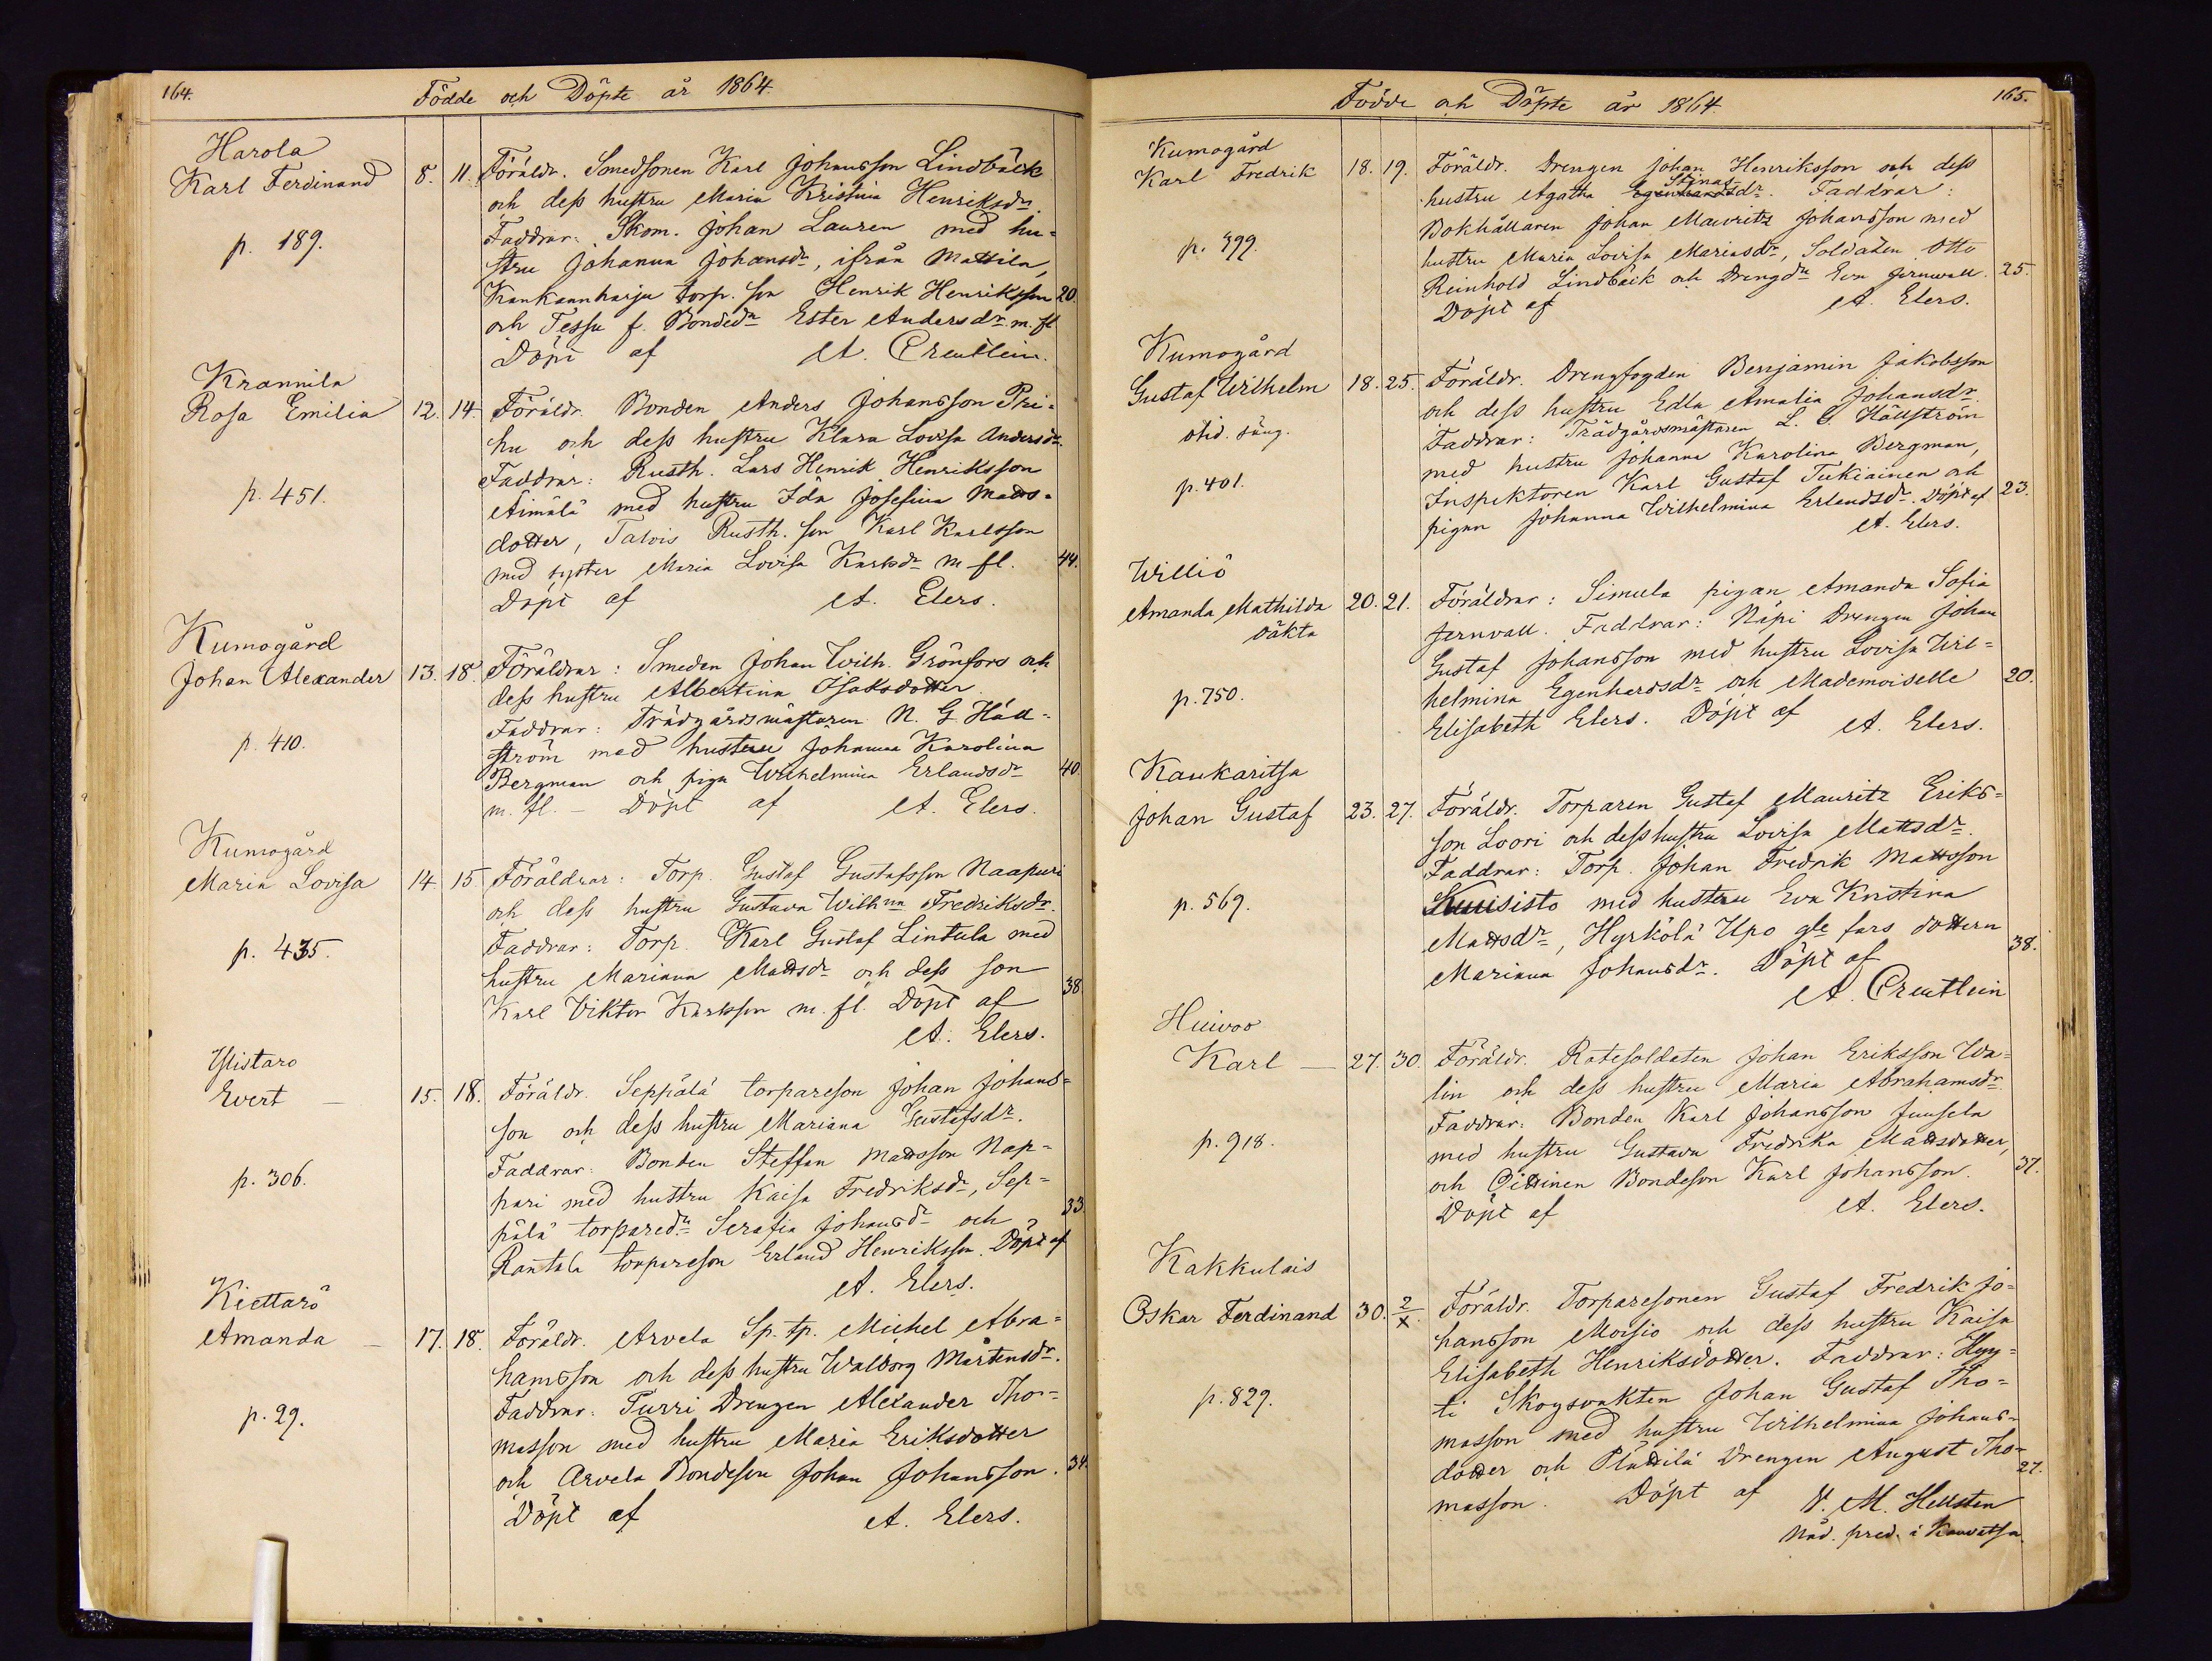 164.
Födde och Döpte år 1864.
Harola
Karl Ferdinand 8. 11. Föräldr. Smedsonen Karl Johansson Lindbäck
och dess hustru Maria Kristina Henriksdr.
Faddrar: Skom. Johan Lauren med hu=
p. 189.
stru Johanna Johansdr, ifrån Mattila,
Kankaanharju torp. son Henrik Henriksson 20.
och Tessu f. Bondedr Ester Andersdr m. fl
Döpt af A. Creutlein.
Krannila
Rosa Emilia 12. 14. Föräldr. Bonden Anders Johansson Pri=
hu och dess hustru Klara Lovisa Andersdr.
Faddrar: Rusth. Lars Henrik Henriksson
p. 451.
Äimälä med hustru Ida Josefina Matts=
dotter, Talvis Rusth. son Karl Karlsson
med syster Maria Lovisa Karlsdr m fl. 44.
Döpt af A. Elers.
Kumogård
Johan Alexander 13. 18. Föräldrar: Smeden Johan Wilh. Grönfors och
dess hustru Albertina Isaksdotter.
Faddrar: Trädgårdsmästaren N. G. Häll=
p. 410.
ström med hustru Johanna Karolina
Bergman och piga Wilhelmina Erlandsdr 40.
m. fl. – Döpt af A. Elers.
Kumogård
Maria Lovisa 14. 15. Föräldrar: Torp. Gustaf Gustafsson Naapuri
och dess hustru Gustava Wilhna Fredriksdr.
p. 435.
Faddrar: Torp. Karl Gustaf Lintula med
hustru Mariana Mattsdr och dess son
Karl Viktor Karlsson m. fl. Döpt af 38
A. Elers.
Ylistaro
Evert – 15. 18. Föräldr. Seppälä torpareson Johan Johans=
son och dess hustru Mariana Gustafsdr.
Faddrar: Bonden Steffan Mattsson Nap=
p. 306.
pari med hustru Kaisa Fredriksdr, Sep=
pälä torparedr Serafia Johansdr och 33
Rantala torpareson Erland Henriksson. Döpt af
A. Elers.
Kiettarö
Amanda – 17. 18. Föräldr. Arvela Sp. tp. Michel Abra=
hamsson och dess hustru Walborg Mårtensdr.
Faddrar: Purri Drengen Alexander Tho=
p. 29.
masson med hustru Maria Eriksdotter
och Arvela Bondeson Johan Johansson. 34.
Döpt af A. Elers.
165.
Födde och Döpte år 1864.
Kumogård
Karl Fredrik 18. 19. Föräldr. Drengen Johan Henriksson och dess
hustru Agatha Stinasdr. Faddrar:
Bokhållaren Johan Mauritz Johansson med
p. 399.
hustru Maria Lovisa Mariasdr, Soldaten Otto
Reinhold Lindbäck och Drengdr Eva Jernvall. 25.
Döpt af A. Elers.
Kumogård
Gustaf Wilhelm 18. 25. Föräldr. Drengfogden Benjamin Jakobsson
och dess hustru Edla Amalia Johansdr.
Faddrar: Trädgårdsmästaren L. G. Hällström
med hustru Johanna Karolina Bergman,
p. 401.
Inspektoren Karl Gustaf Tukiainen och
pigan Johanna Wilhelmina Erlandsdr. Döpt af 23.
A. Elers.
Williö
Amanda Mathilda 20. 21. Föräldrar: Simula pigan Amanda Sofia
oäkta
Jernvall. Faddrar: Näpi Drengen Johan
Gustaf Johansson med hustru Lovisa Wil=
p. 750.
helmina Egenhardsdr och Mademoiselle 20.
Elisabeth Elers. Döpt af A. Elers.
Kaukaritsa
Johan Gustaf 23. 27. Föräldr. Torparen Gustaf Mauritz Eriks=
son Loori och dess hustru Lovisa Mattsdr.
Faddrar: Torp. Johan Fredrik Mattsson
p. 569.
Kuusisto med hustru Eva Kristina
Mattsdr, Hyrkölä Upo gle fars dottern
Mariana Johansdr. Döpt af 38.
A. Creutlein
Huivoo
Karl – 27. 30. Föräldr. Rotesoldaten Johan Eriksson Wa=
lin och dess hustru Maria Abrahamsdr
Faddrar: Bonden Karl Johansson Juusela
p. 918.
med hustru Gustava Fredrika Mattsdotter,
och Pittinen Bondeson Karl Johansson. 37.
Döpt af A. Elers.
Kakkulais
Oskar Ferdinand 30. 2/X. Föräldr. Torparesonen Gustaf Fredrik Jo=
hansson Moisio och dess hustru Kaisa
Elisabeth Henriksdotter. Faddrar: Hyy=
p. 829.
ti Skogsvakten Johan Gustaf Tho=
masson med hustru Wilhelmina Johans=
dotter och Plättilä Drengen August Tho= 27.
masson. Döpt af V. M. Hellsten
Nåd. pred. i Kauvatsa.